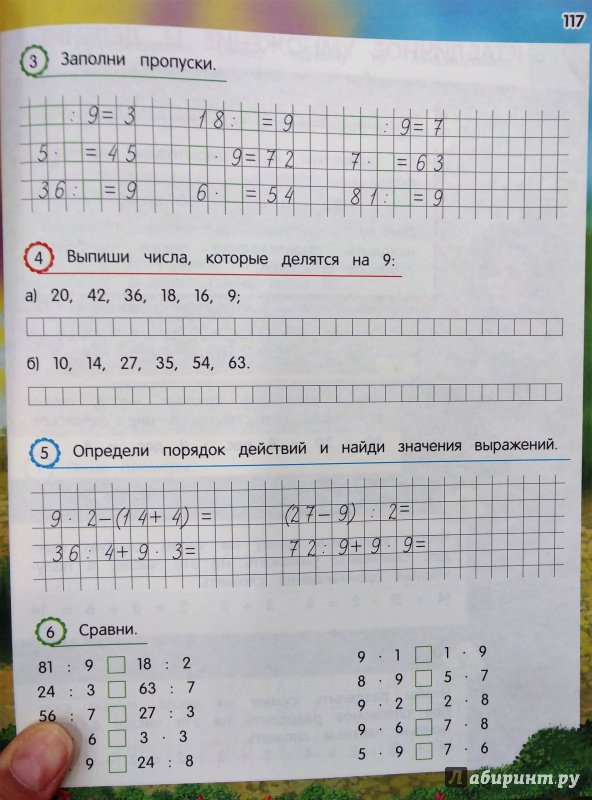 117
3 Заполни пропуски.
: 9 = 3 18 : = 9 : 9 = 7
5 · = 45 · 9 = 72 7 · = 63
36 : = 9 6 · = 54 81 : = 9
4 Выпиши числа, которые делятся на 9:
а) 20, 42, 36, 18, 16, 9;
б) 10, 14, 27, 35, 54, 63.
5 Определи порядок действий и найди значения выражений.
9 · 2 – (14 + 4) = (27 – 9) : 2 =
36 : 4 + 9 · 3 = 72 : 9 + 9 · 9 =
6 Сравни.
81 : 9 □ 18 : 2 9 · 1 □ 1 · 9
24 : 3 □ 63 : 7 8 · 9 □ 5 · 7
56 : 7 □ 27 : 3 9 · 2 □ 2 · 8
6 □ 3 · 3 9 · 6 □ 7 · 8
9 □ 24 : 8 5 · 9 □ 7 · 6
Лабиринт.ру